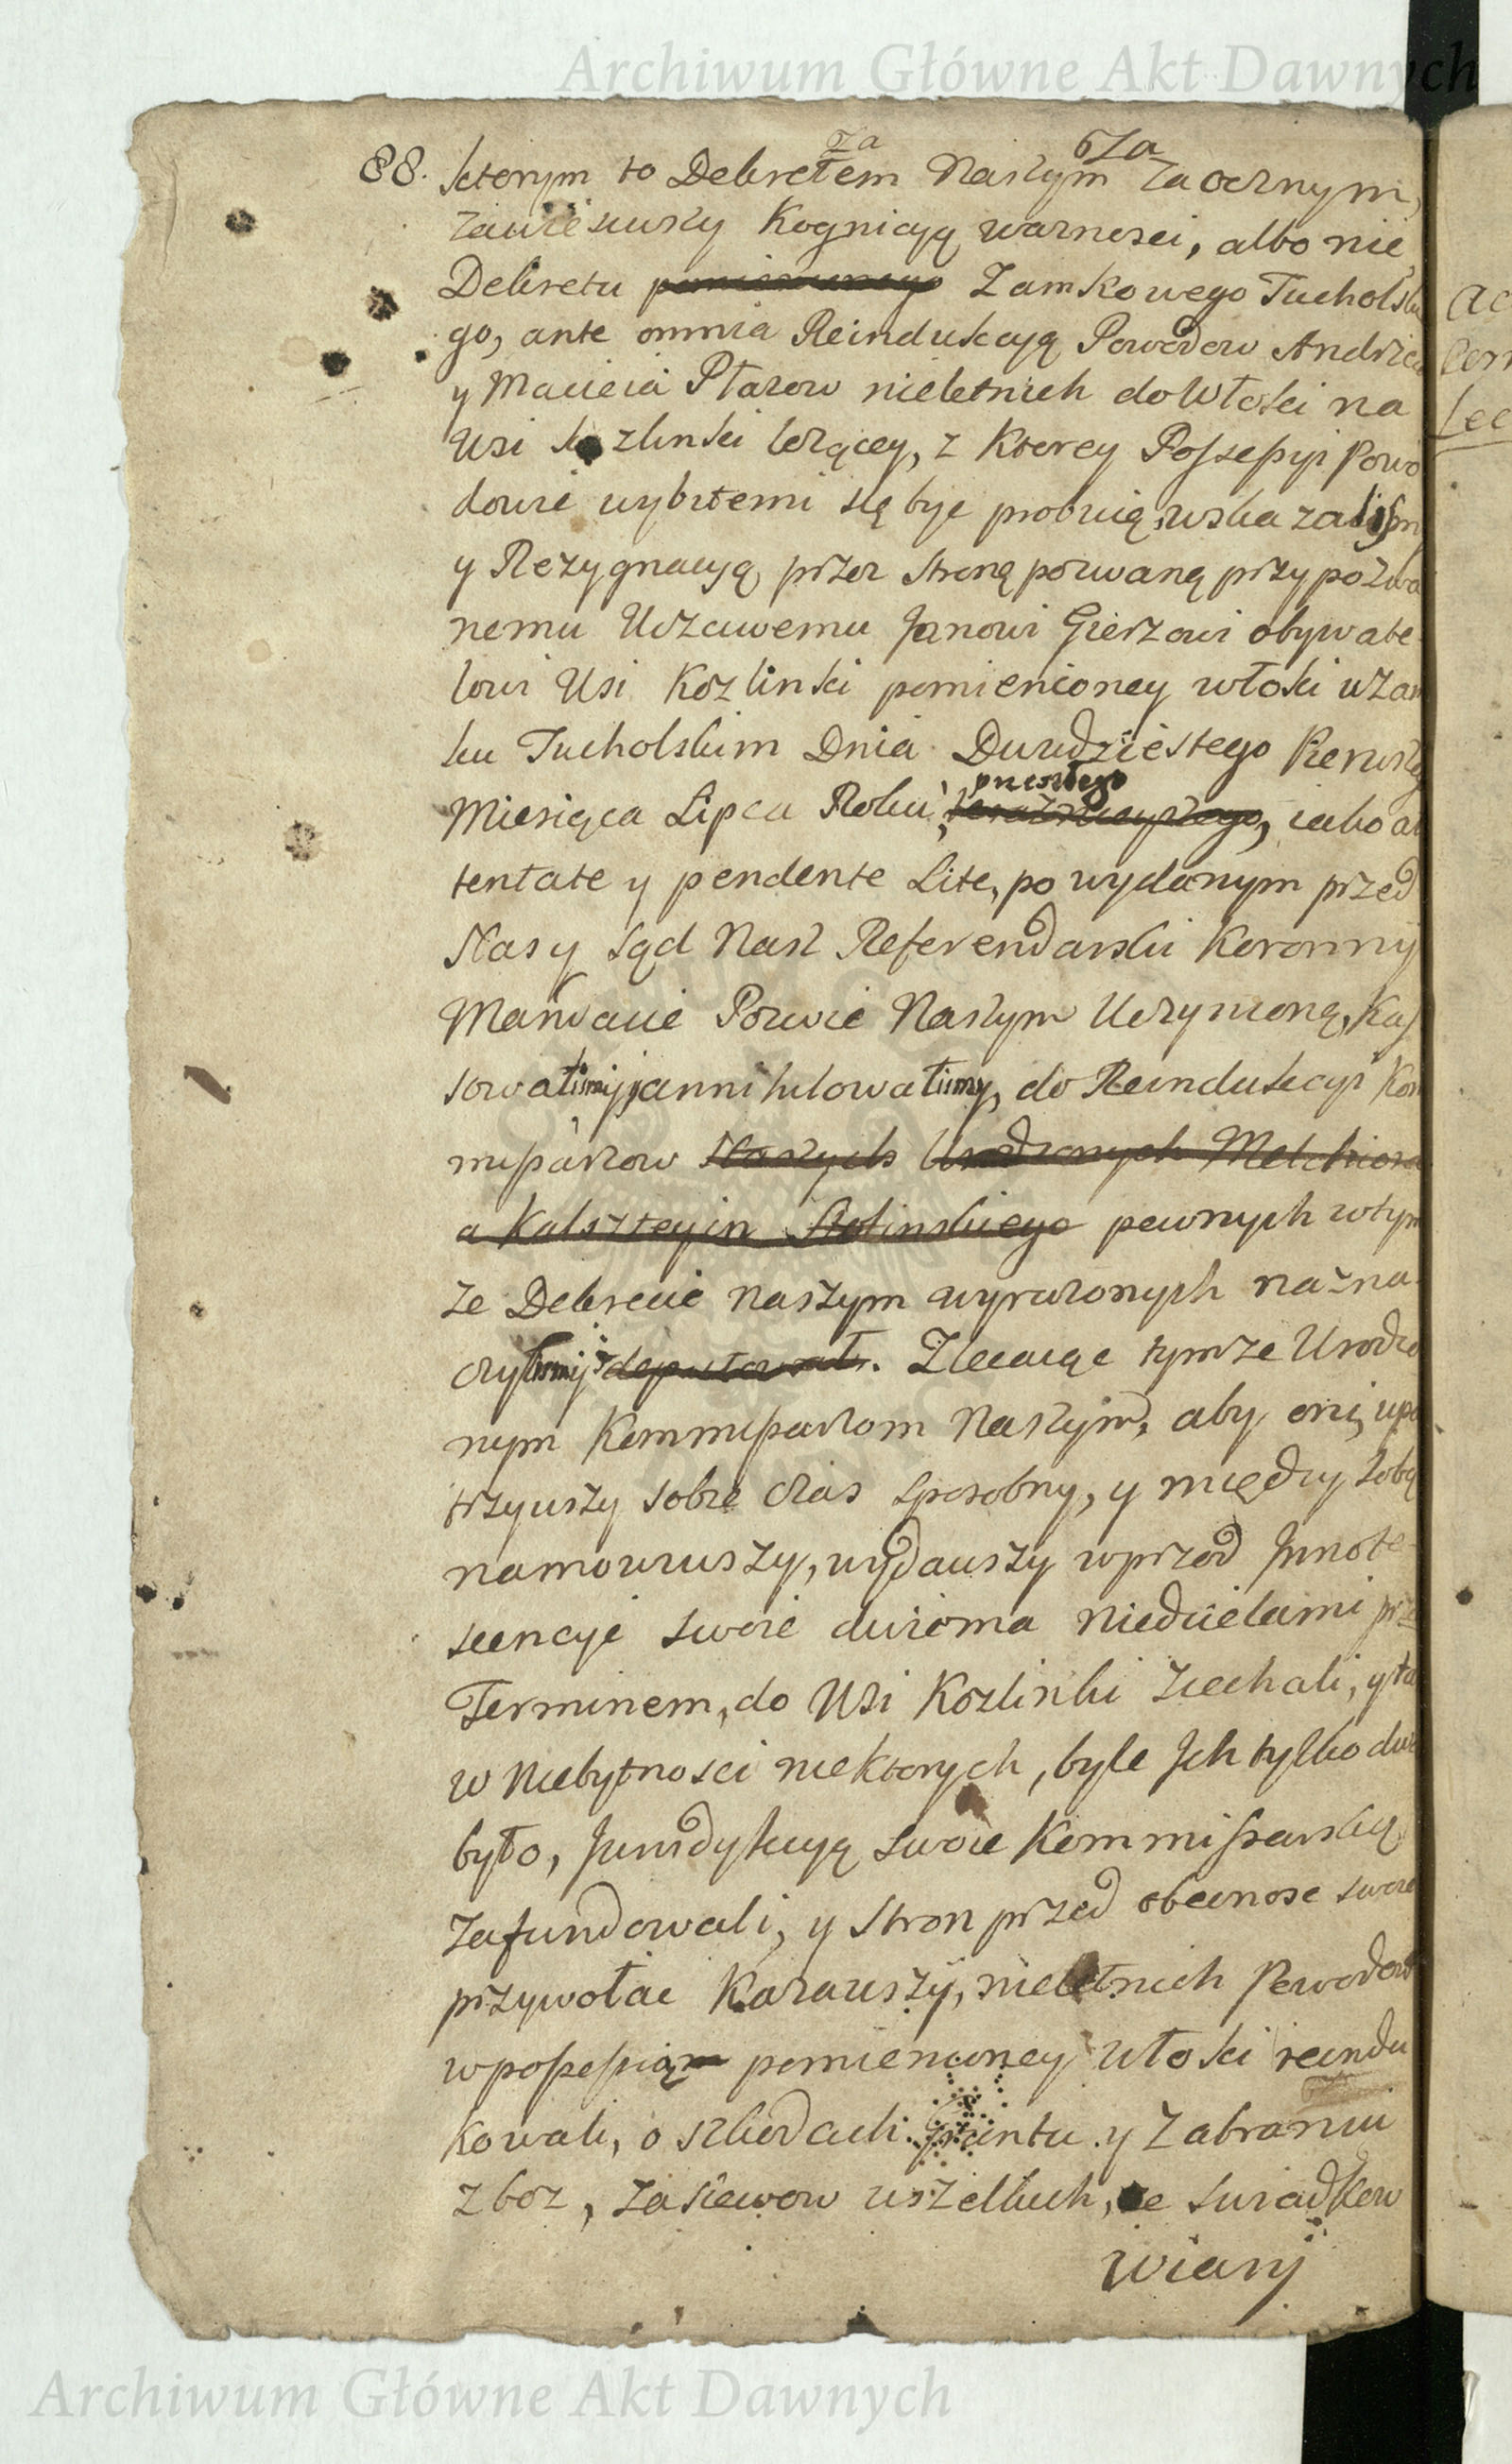 Archiwum Główne Akt Dawnych
88. ktorym to Dekretem Naszym zaocznym,
zawiesiwszy Kognicyą waznosci, albo nie
Dekretu pomienionego Zamkowego Tucholsk
go, ante omnia Reindukcyą Powodow Andrze
y Macieia Ptazow nieletnich do Włoki na
Wsi Kozlinki lezącey, z Ktorey Possessyi Powo
dowie wybitemi się byc probuią, wskazalism
y Rezygnacyą przez Stroną pozwaną przypozwa
nemu Uczciwemu Janowi Gierzowi obywate
lowi Wsi Kozlinki pomienioney włoki w Zam
ku Tucholskim Dnia Dwudziestego Pierwszeg
przeszłego
Miesiąca Lipca Roku, teraznieyszego, iako at
tentate y pendente Lite, po wydanym przed
Nas y Sąd Nasz Referendarski Koronny
Mandacie Pozwie Naszym Uczynioną, Kas
sowalismy, y annihilowalismy, do Reindukcyi Kom
missarzow Naszych Urodzonych Melchiora
a Kalszteyin Stolinskiego pewnych w tym
ze Dekrecie naszym wyrazonych nazna
czylismy deputował. Zlecaiąc tymze Urodzo
nym Kommissarzom Naszym, aby oni, upa
trzywszy sobie czas sposobny, y między sobą
namowiwszy, wydawszy wprzod Innote
scencye swoie dwiema Niedzielami prze
Terminem, do Wsi Kozlinki ziechali, y ta
w Niebytnosci niektorych, byle Ich tylko dwo
było, Jurisdykcyą swoie Kommissarską
zafundowali, y Stron przed obecnosc swoie
przywołac Kazawszy, nieletnich Powodow
w possessią pomienioney Włoki reindu
kowali, o szkodach Gruntu y Zabraniu
zboz, zasiewow wszelkich, ze swiadkow
wiary
Archiwum Główne Akt Dawnych